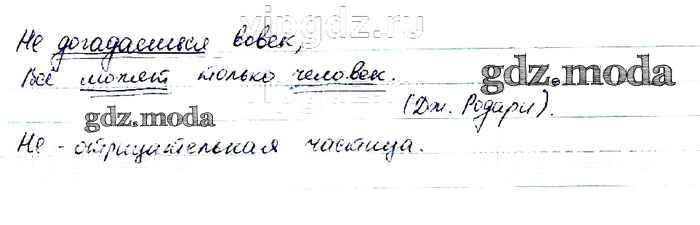 yingdz.ru
Не догадаешься вовек,
Всё может только человек.
gdz.moda
(Дж. Родари).
gdz.moda
Не - отрицательная частица.